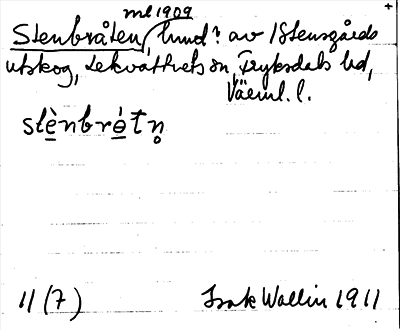 ml 1909
Stenbråten, hmd? av Stensgårds
utskog, Lekvattnets sn, Fryksdals hd,
Värml. l.
stènbrǿtn̥
11 (7) Isak Wallin 1911